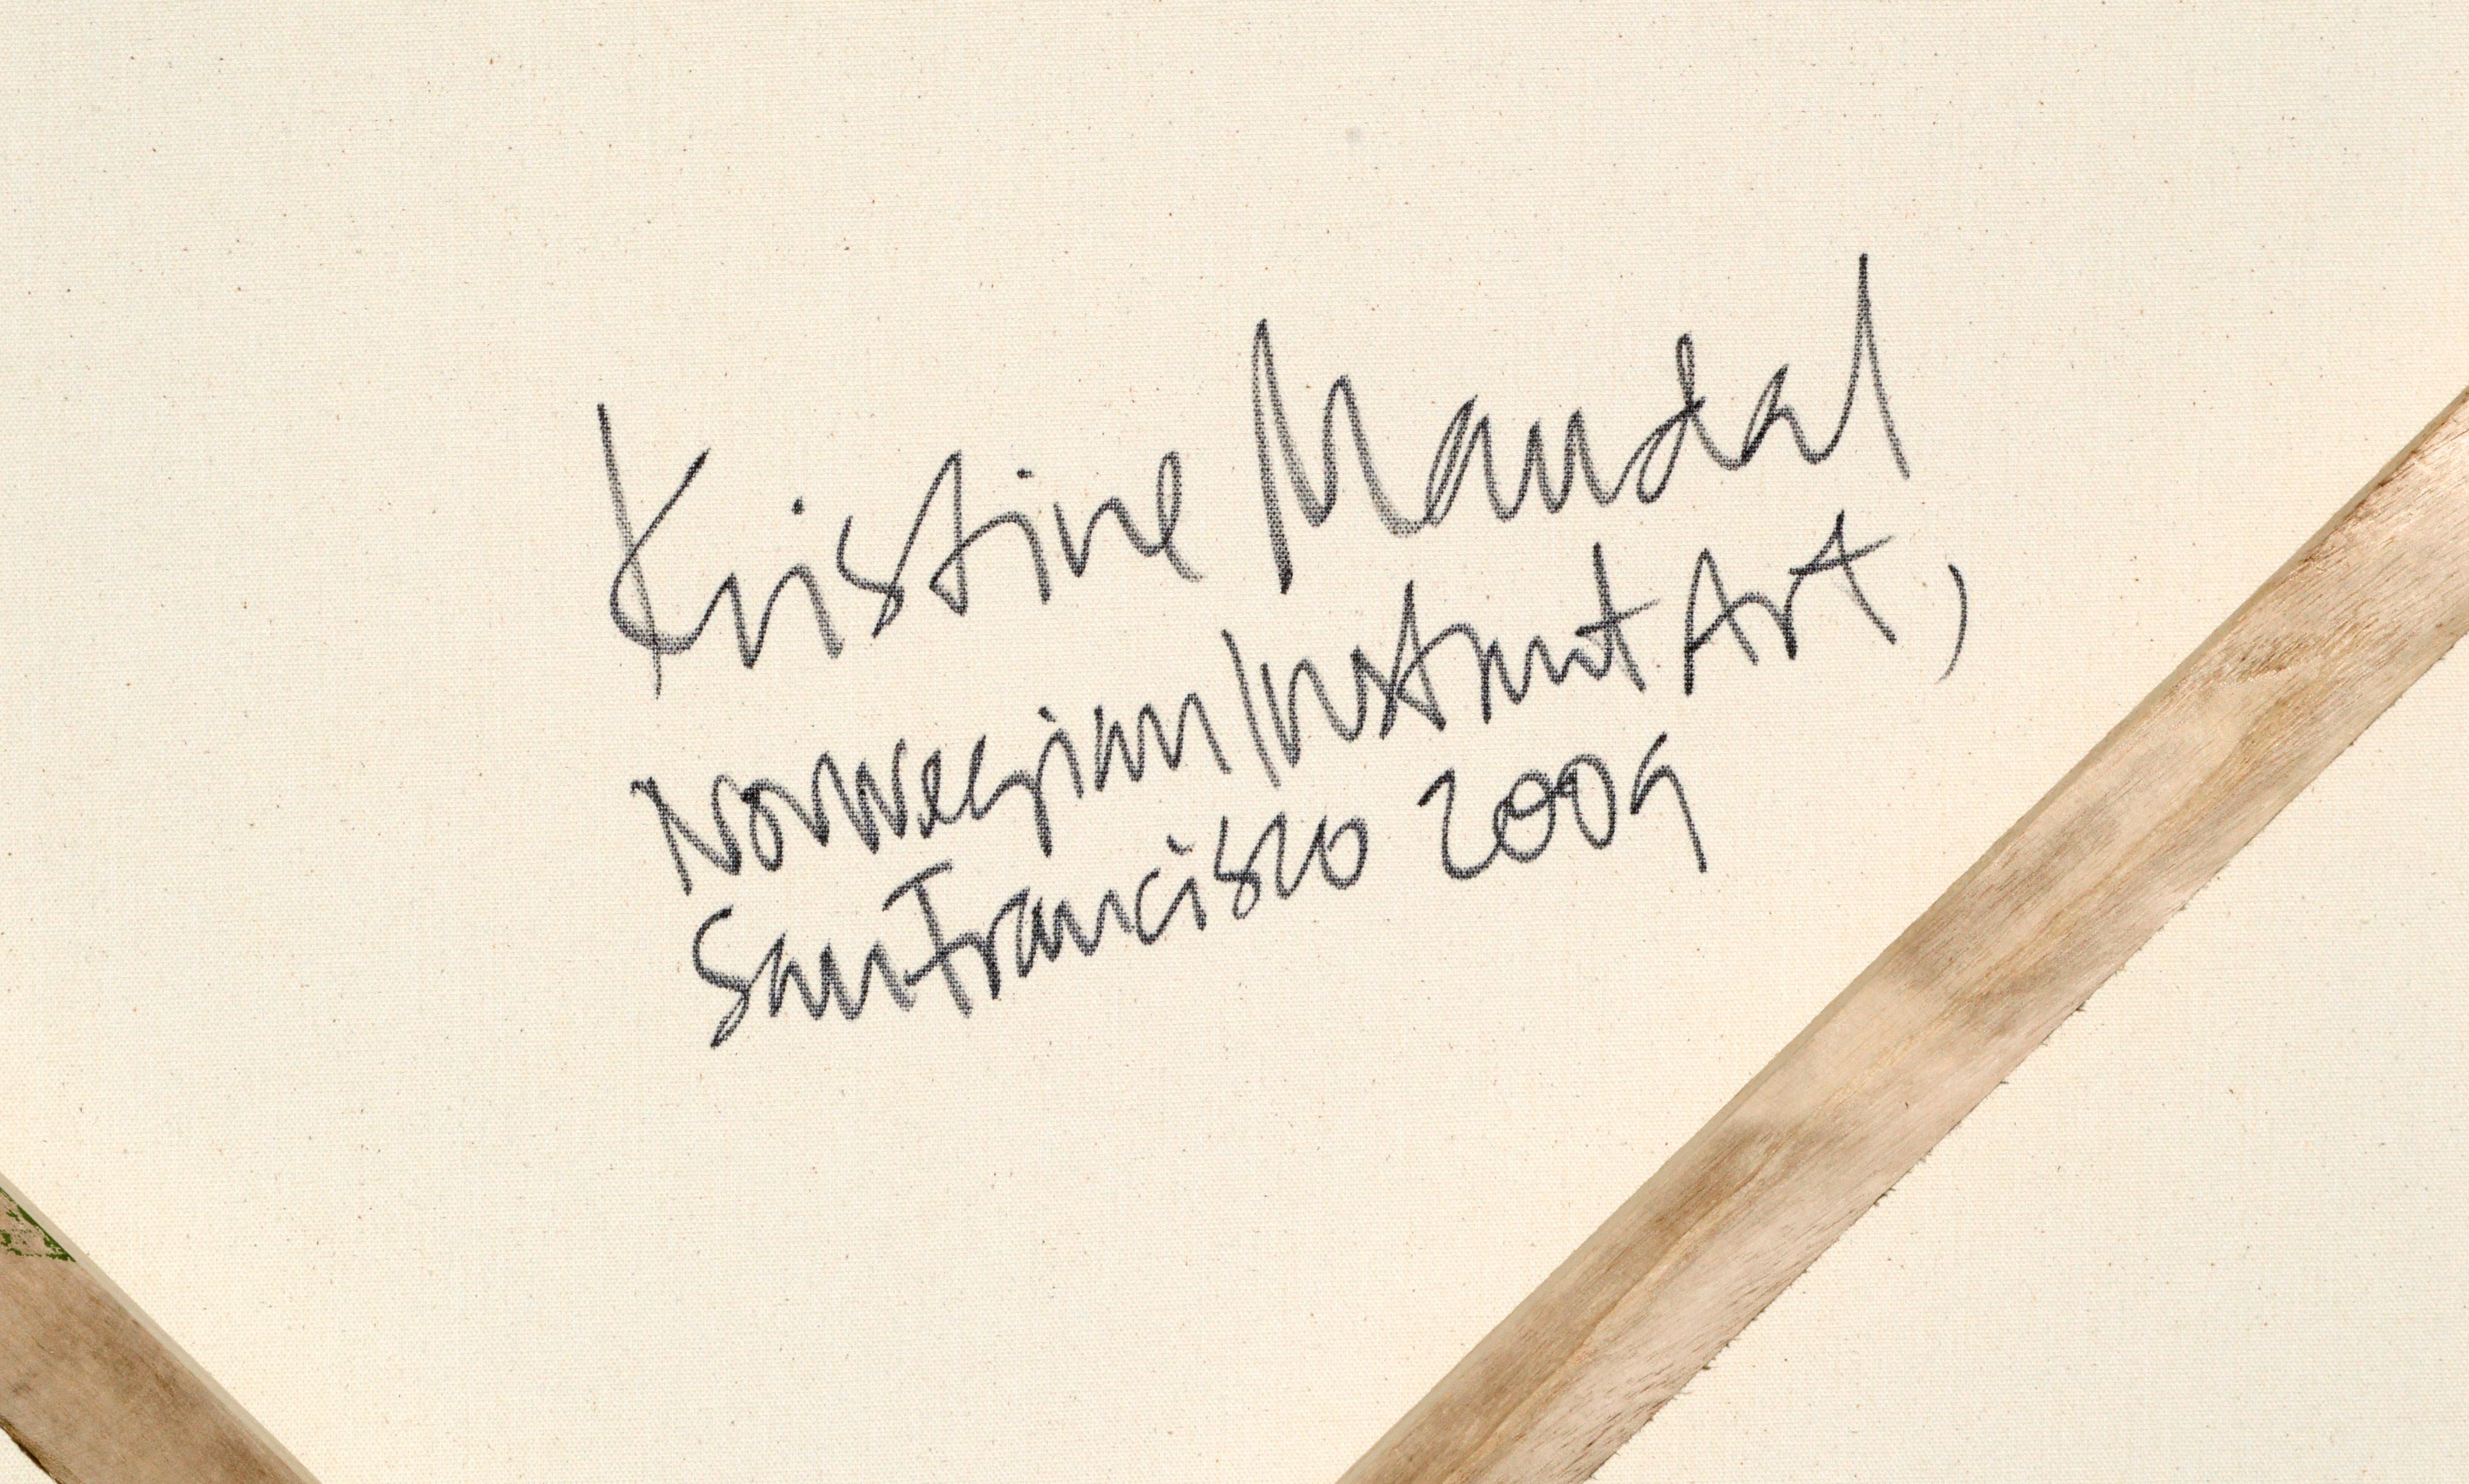 Kristine Mandal
Norwegian Instant Art,
San Francisco 2009